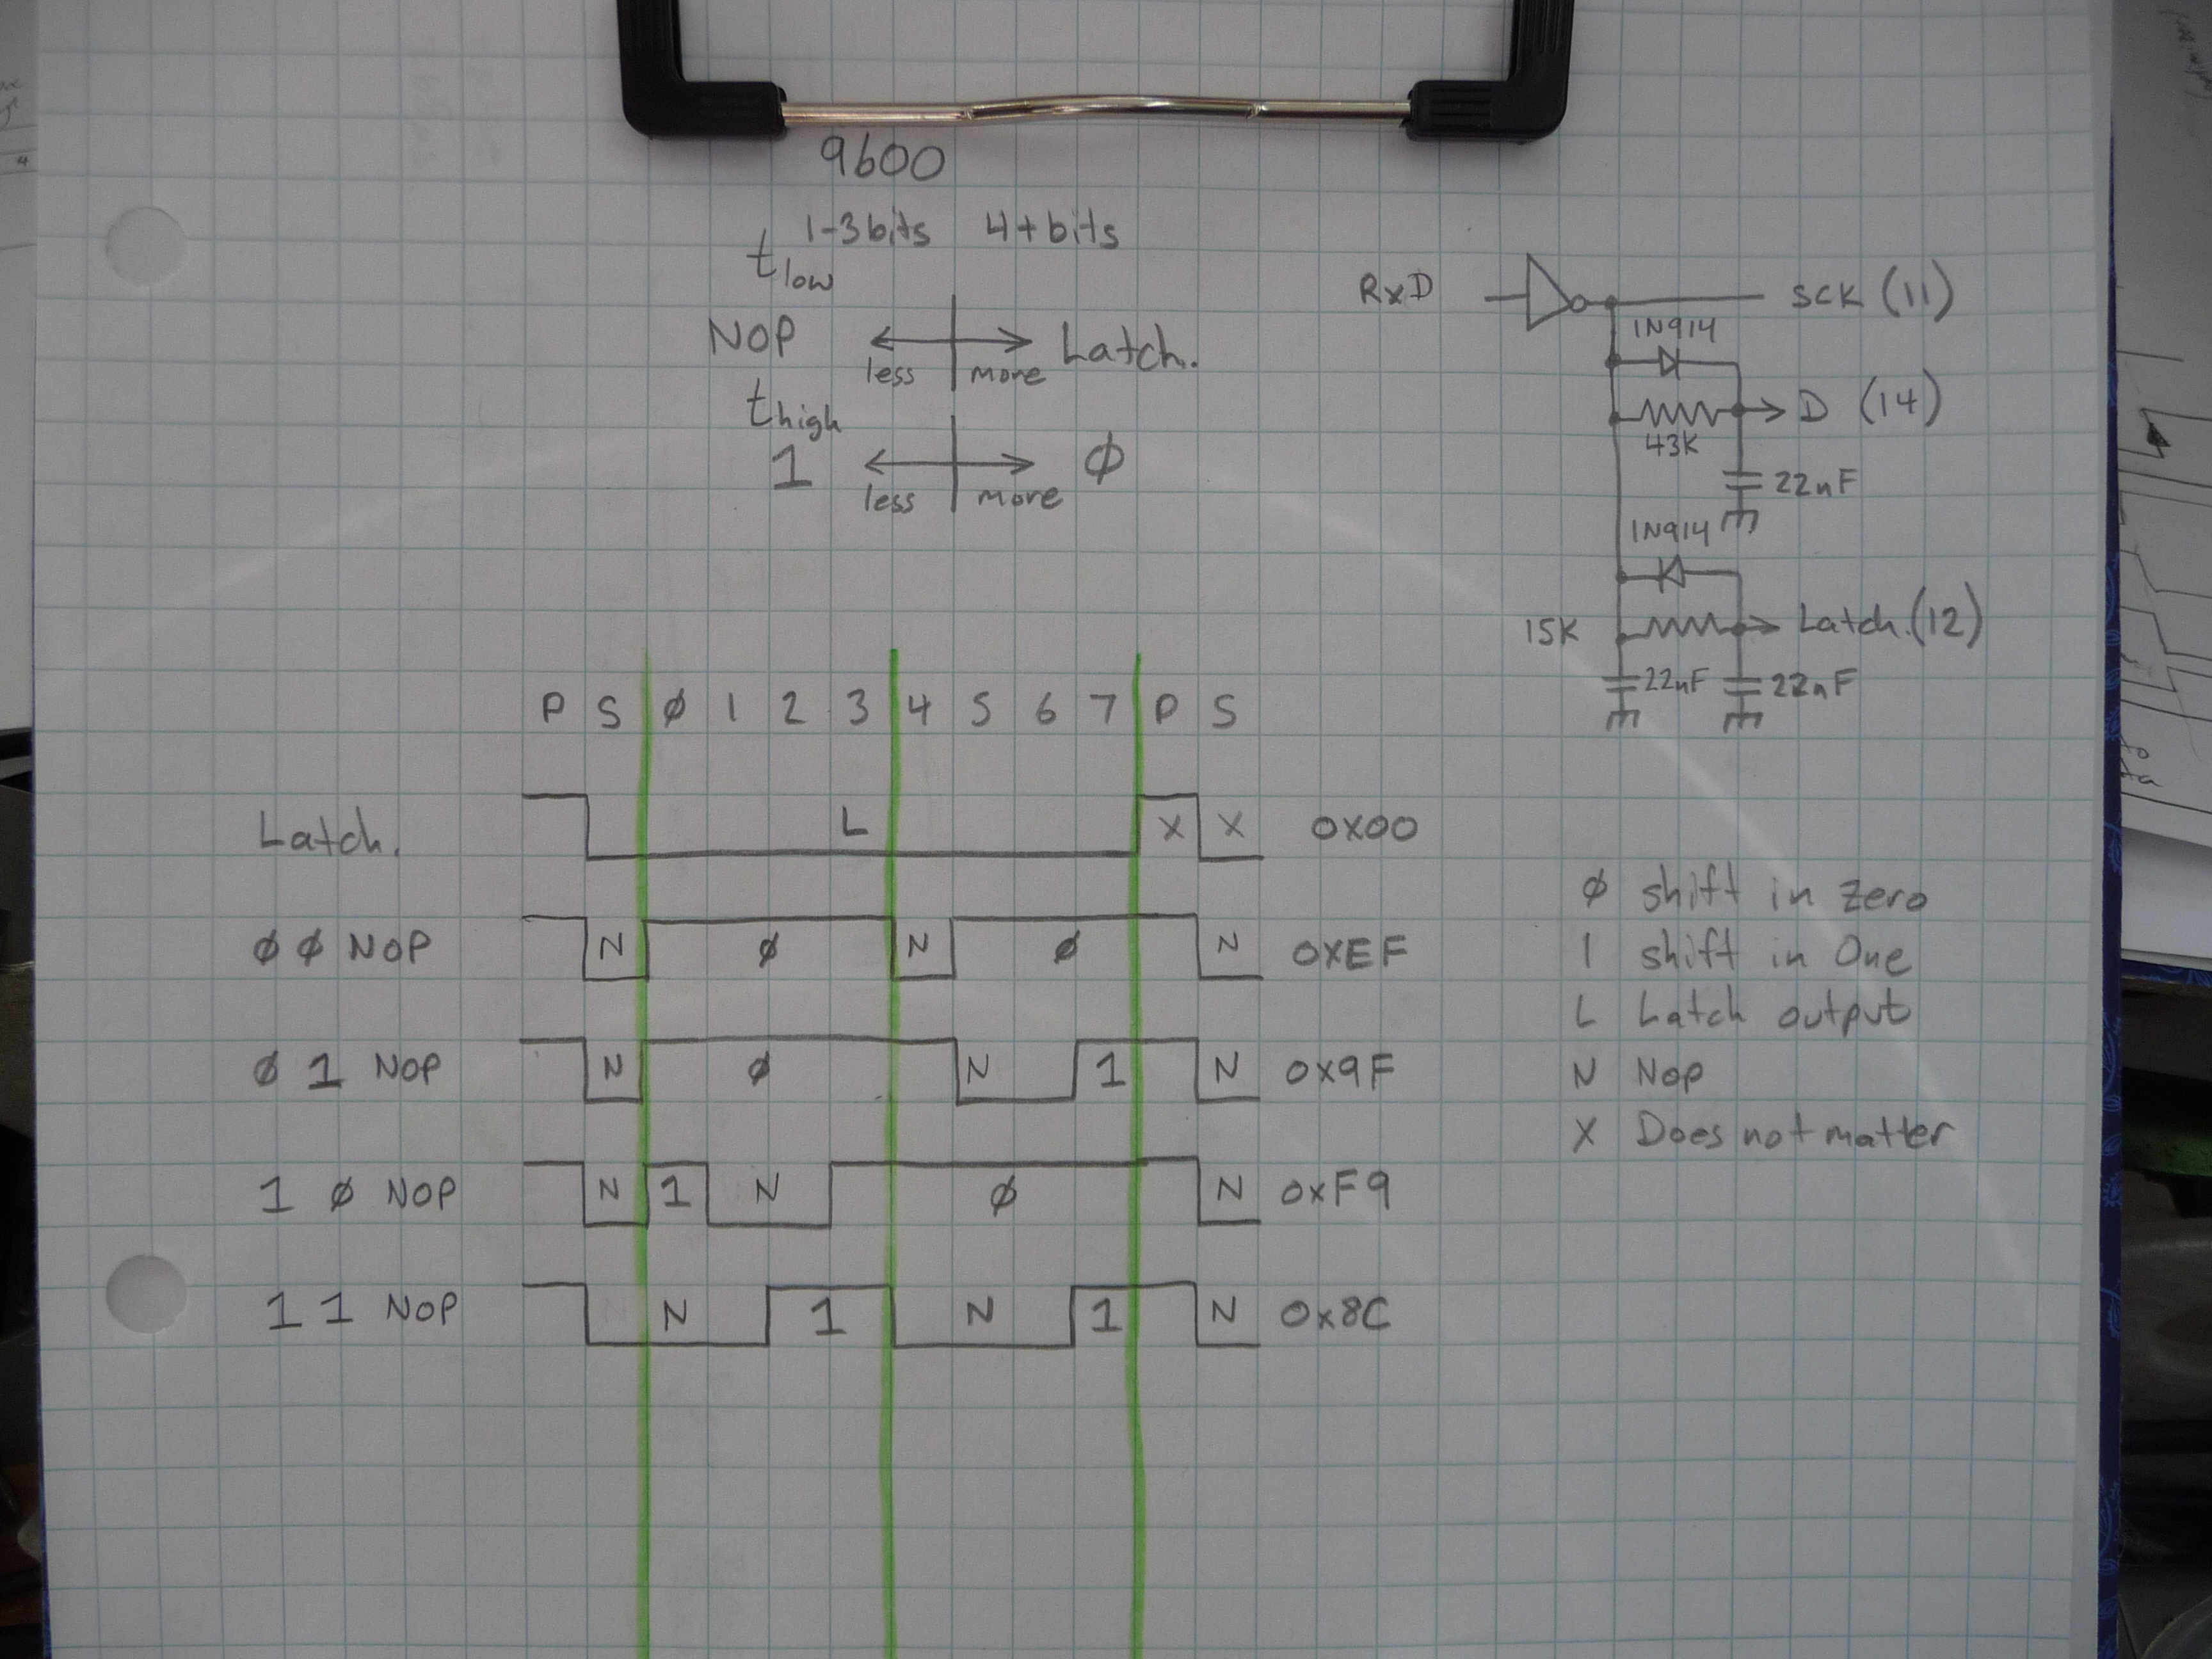 9600
1-3bits 4+bits
tlow
NOP less more Latch.
thigh
1 less more ϕ
RxD SCK (11)
1N914
D (14)
43K
22nF
1N914
15K Latch. (12)
22nF 22nF
P S ϕ 1 2 3 4 5 6 7 P S
Latch. L X X 0X00
ϕ ϕ NOP N ϕ N ϕ N 0XEF
ϕ 1 NOP N ϕ N 1 N 0x9F
1 ϕ NOP N 1 N ϕ N 0xF9
1 1 NOP N 1 N 1 N 0x8C
ϕ shift in zero
1 shift in One
L Latch output
N Nop
X Does not matter